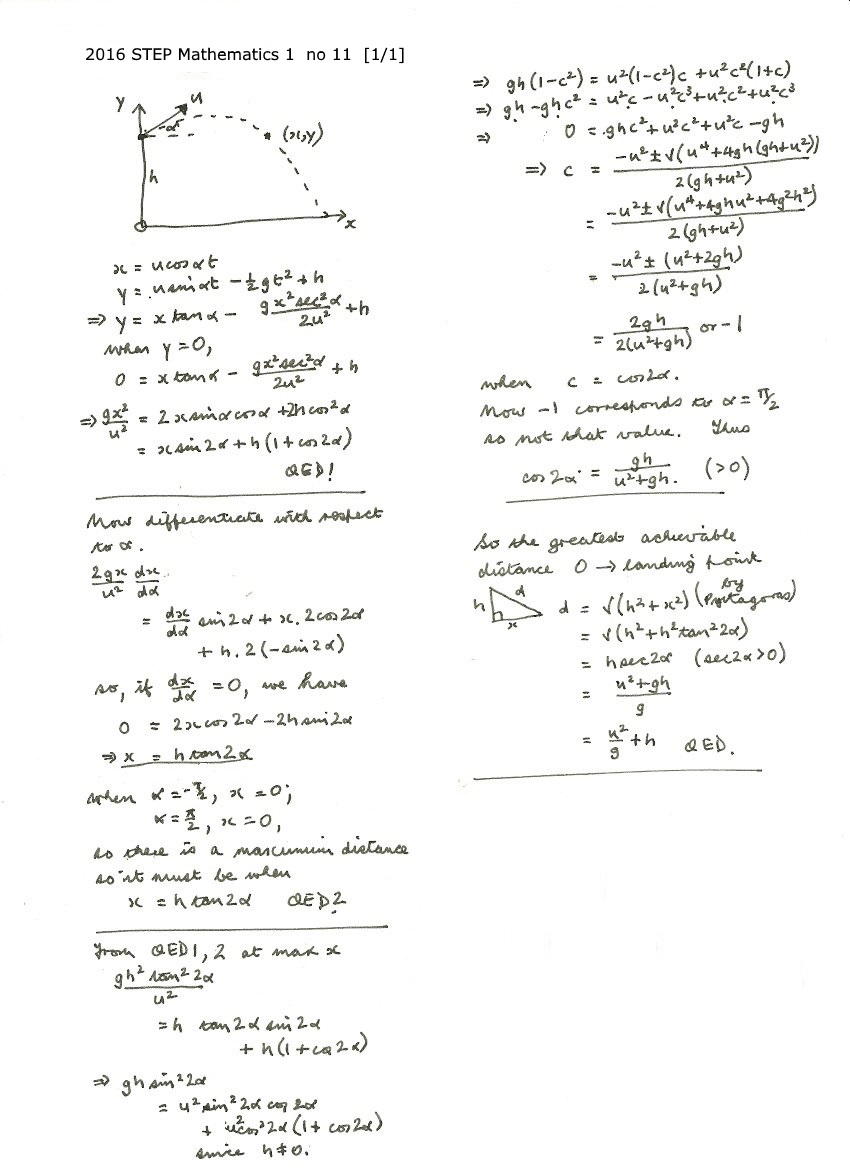 2016 STEP Mathematics 1 no 11 [1/1]
y
u
α
(x,y)
h
x
x = ucosαt
y = usinαt - ½gt² + h
⇒ y = x tanα - gx²sec²α/2u² + h
when y=0,
0 = x tanα - gx²sec²α/2u² + h
⇒ gx²/u² = 2xsinαcosα + 2hcos²α
= xsin2α + h(1+cos2α)
QED1
Now differentiate with respect
to α.
2gx/u² dx/dα
= dx/dα sin2α + x.2cos2α
+ h.2(-sin2α)
so, if dx/dα = 0, we have
0 = 2xcos2α - 2hsin2α
⇒ x = htan2α
when α = -π/2, x = 0;
α = π/2, x = 0,
so there is a maximum distance
so it must be when
x = htan2α QED2
From QED1, 2 at max x
gh² tan²2α/u²
= h tan2α sin2α
+ h(1+cos2α)
⇒ gh sin²2α
= u²sin²2α cos2α
+ u²cos²2α(1+cos2α)
since h≠0.
⇒ gh(1-c²) = u²(1-c²)c + u²c²(1+c)
⇒ gh - ghc² = u²c - u²c³ + u²c² + u²c³
⇒ 0 = ghc² + u²c² + u²c - gh
⇒ c = -u² ± √(u⁴+4gh(gh+u²))/2(gh+u²)
= -u² ± √(u⁴+4ghu²+4g²h²)/2(gh+u²)
= -u² ± (u²+2gh)/2(u²+gh)
= 2gh/2(u²+gh) or -1
when c = cos2α.
Now -1 corresponds to α = π/2
so not that value. Thus
cos2α = gh/u²+gh. (>0)
So the greatest achievable
distance O → landing point
h
d
x
d = √(h²+x²) (by Pythagoras)
= √(h²+h²tan²2α)
= hsec2α (sec2α>0)
= u²+gh/g
= u²/g + h QED.